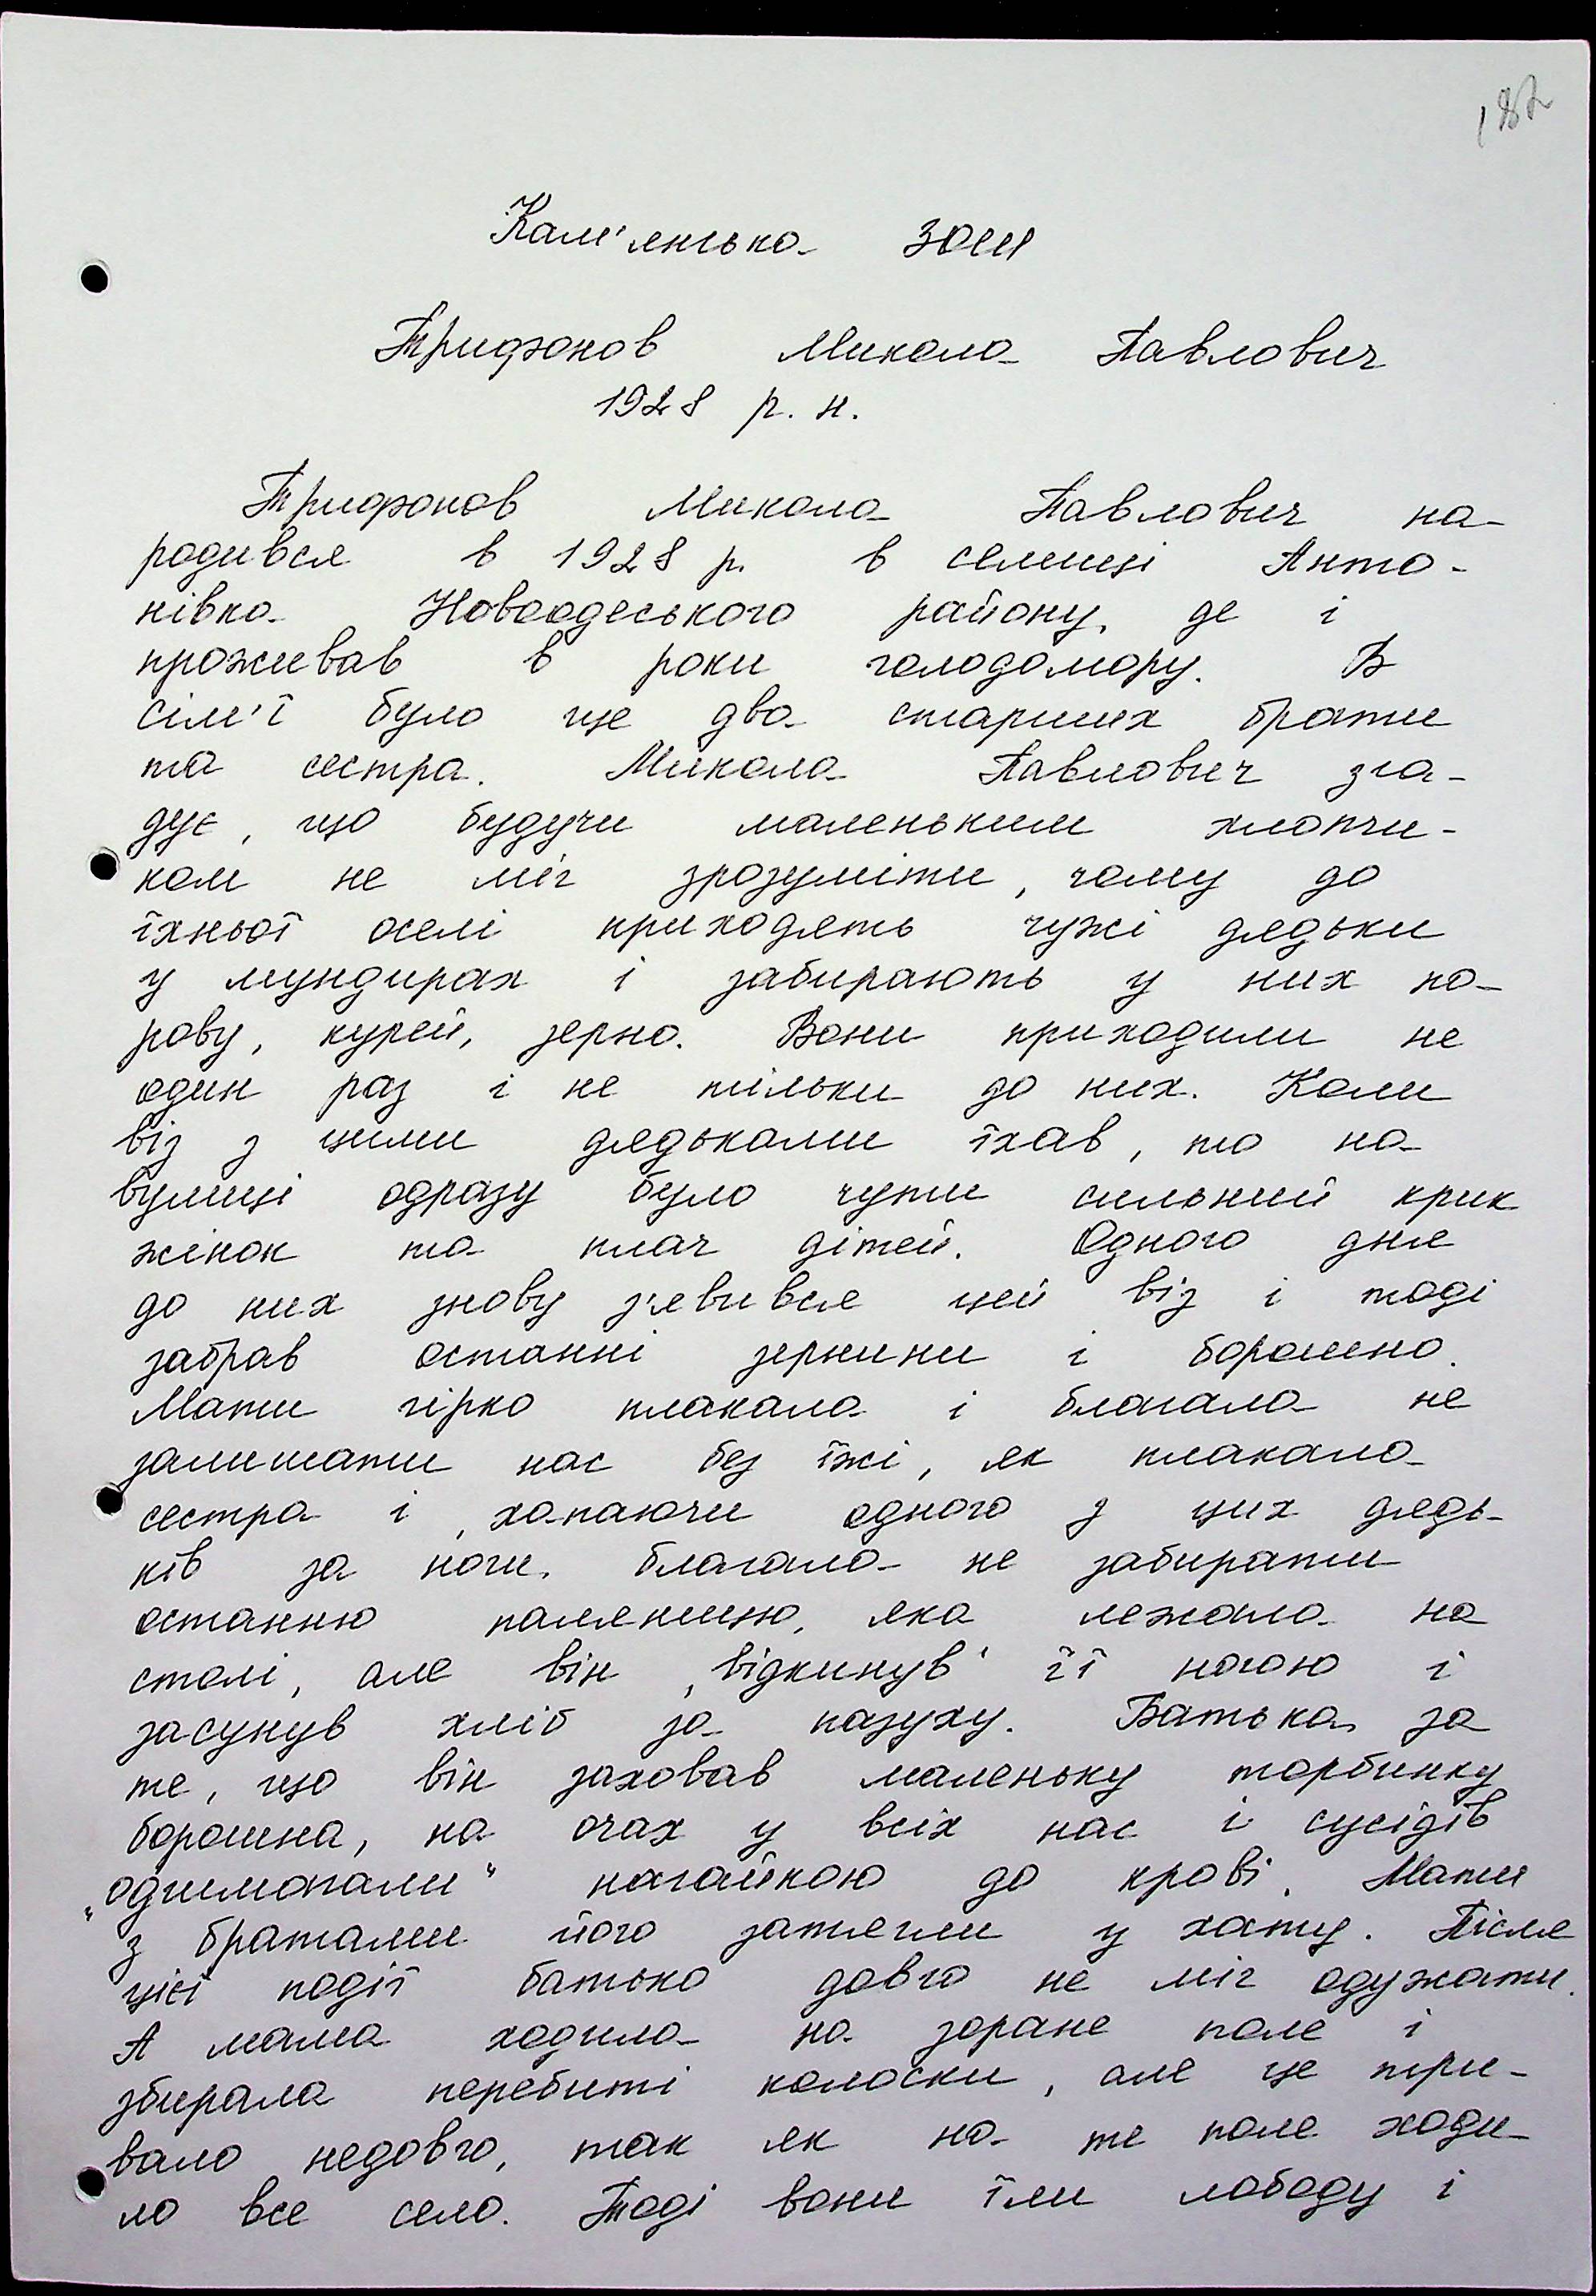 182
Кам'янська ЗОШ
Трифонов Микола Павлович
1928 р. н.
Трифонов Микола Павлович на-
родився в 1928 р. в селищі Анто-
нівка Новоодеського району, де і
проживав в роки голодомору. В
сім'ї було ще два старших брати
та сестра. Микола Павлович зга-
дує, що будучи маленьким хлопчи-
ком не міг зрозуміти, чому до
їхньої оселі приходять чужі дядьки
у мундирах і забирають у них ко-
рову, курей, зерно. Вони приходили не
один раз і не тільки до них. Коли
віз з цими дядьками їхав, то на
вулиці одразу було чути сильний крик
жінок та плач дітей. Одного дня
до них знову з'явився цей віз і тоді
забрав останні зернини і борошно.
Мати гірко плакала і благала не
залишати нас без їжі, як плакала
сестра і, хапаючи одного з цих дядь-
ків за ноги, благала не забирати
останню паляницю, яка лежала на
столі, але він „відкинув" її ногою і
засунув хліб за пазуху. Батька за
те, що він заховав маленьку торбинку
борошна, на очах у всіх нас і сусідів
„одшмагали" нагайкою до крові. Мати
з братами його затягли у хату. Після
цієї події батько довго не міг одужати.
А мама ходила на зоране поле і
збирала перебиті колоски, але це три-
вало недовго, так як на те поле ходи-
ло все село. Тоді вони їли лободу і